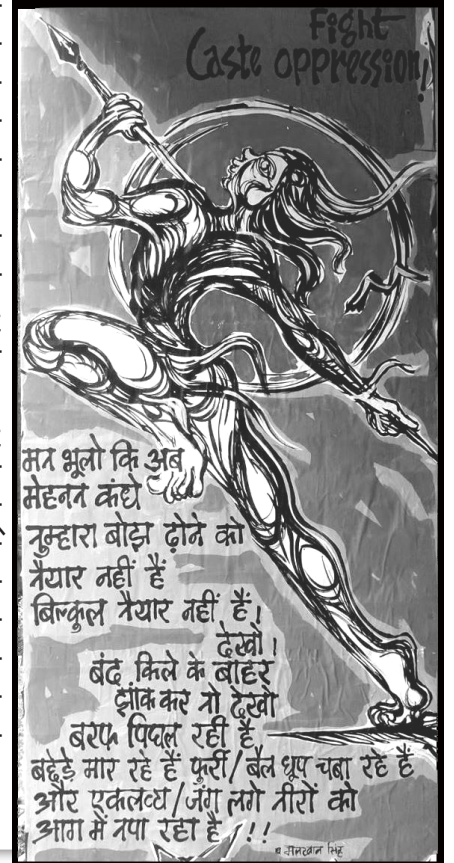 Fight
Caste oppression!
मत भूलो कि अब
मेहनत कंधे
तुम्हारा बोझ ढ़ोने को
तैयार नहीं हैं
बिल्कुल तैयार नहीं हैं।
देखो।
बंद किले के बाहर
झांक कर तो देखो
बरफ पिघल रही है
बछेड़े मार रहे हैं फुर्री/बैल धूप चबा रहे हैं
और एकलव्य/जंग लगे तीरों को
आग में तपा रहा है/!!